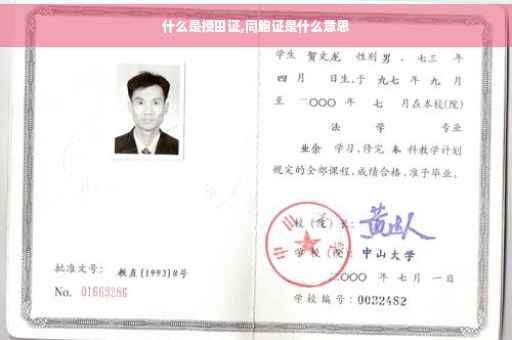 什么是授田证,同购证是什么意思
学生 贺文龙 性别 男 、七三 年
四 月 日生,于 九七 年 九 月
至 二〇〇〇 年 七 月在本校(院)
法 学 专业
业余 学习,修完 本 科教学计划
规定的全部课程,成绩合格,准予毕业。
校 (院) 长:
学 校 (院): 中山大学
批准文号: 教直[1993]8号
二〇〇〇 年 七月 一日
No. 01663286
学校编号: 0032482